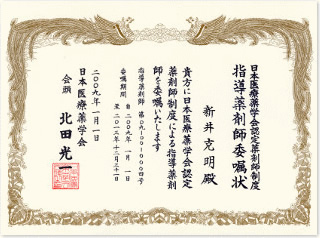 日本医療薬学会認定薬剤師制度
指導薬剤師委嘱状
新井克明殿
貴方に日本医療薬学会認定
薬剤師制度による指導薬剤
師を委嘱いたします
指導薬剤師
委嘱期間 自 二〇〇九年 一月 一日
至 二〇一三年十二月三十一日
二〇〇九年一月一日
日本医療薬学会
会頭 北田光一